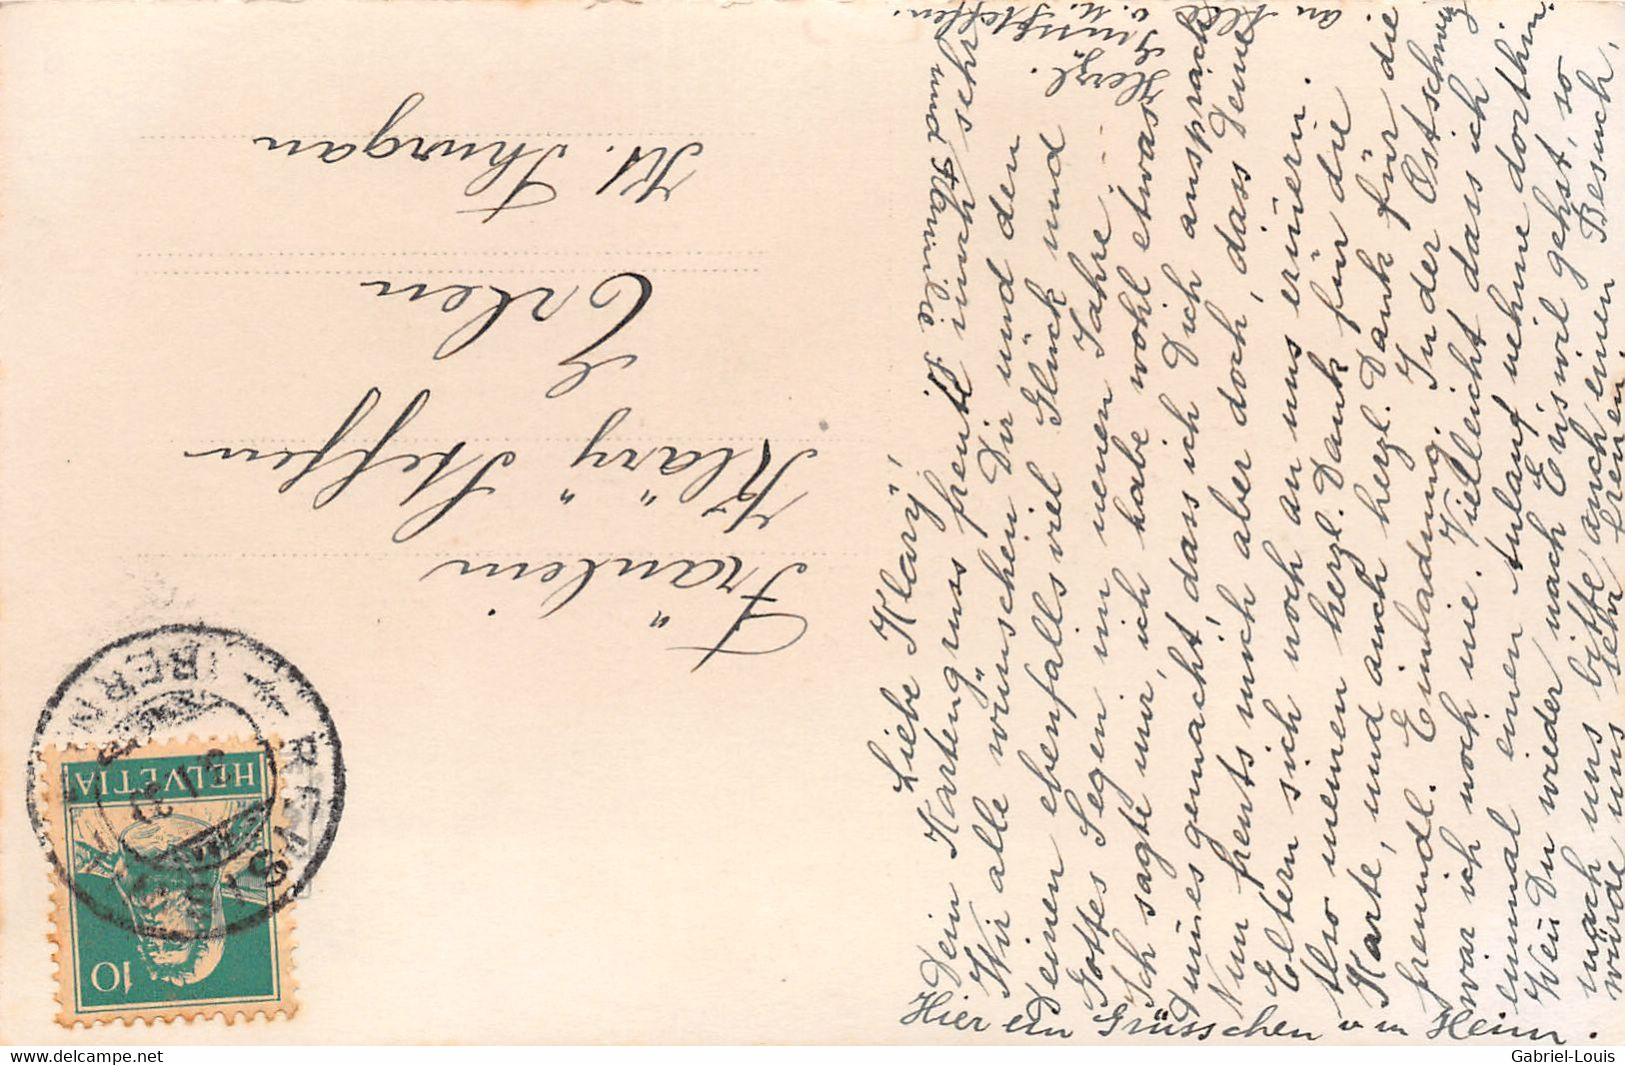 Liebe Klary,
Dein Kartengruss freute mich sehr
Wir alle wünschen Dir und den
Deinen ebenfalls viel Glück und
Gottes Segen im neuen Jahre.
Ich sagte mir, ich habe wohl etwas
dummes gemacht, dass ich Dich ansprach
Nun freuts mich aber doch, dass Deine
Eltern sich noch an uns erinnern.
Also meinen herzl. Dank für die
Karte, und auch herzl. Dank für die
freundl. Einladung. In der Ostschweiz
war ich noch nie. Vielleicht dass ich
einmal einen Anlauf nehme dorthin.
Wenn Du wieder nach Eriswil gehst, so
mach uns bitte auch einen Besuch,
würde uns sehr freuen.
Hier ein Grüsschen v. m. Heim.
und Familie S.
Herzl.
Gruss
an Alle
v. M. Steffen.
Fräulein
Kläry Steffen
Erlen
Kt. Thurgau
HELVETIA
10
(BERN)
3 I 30
Gabriel-Louis
delcampe.net